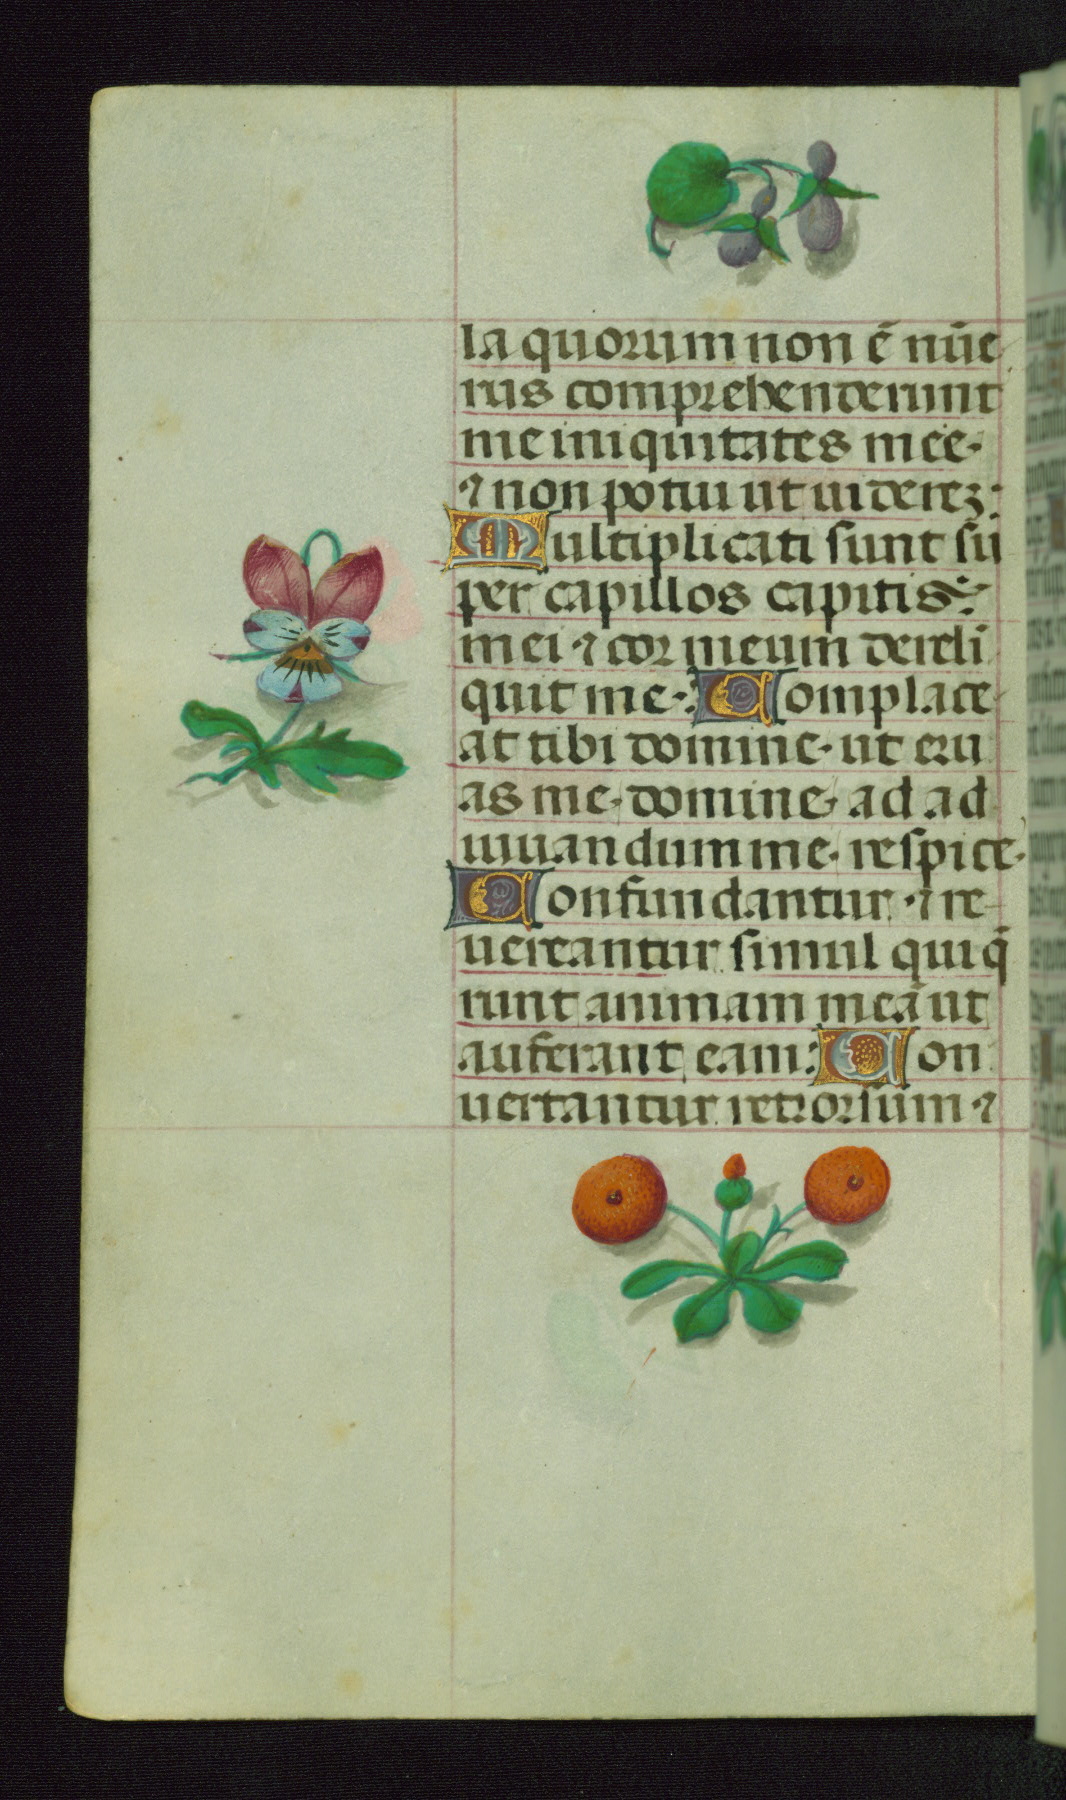 la quorum non ē nūe
rus comprehenderunt
me iniquitates mee·
⁊ non potui ut viderez:
Multiplicati sunt sū
per capillos capitis:
mei ⁊ cor meum dereli
quit me·: Complace
at tibi domine· ut eru
as me· domine· ad ad
iuuandum me· respice·
Confundantur· ⁊ re
uereantur simul qui q̄
runt animam meā ut
auferant eam: Con
uertantur retrorsum ⁊